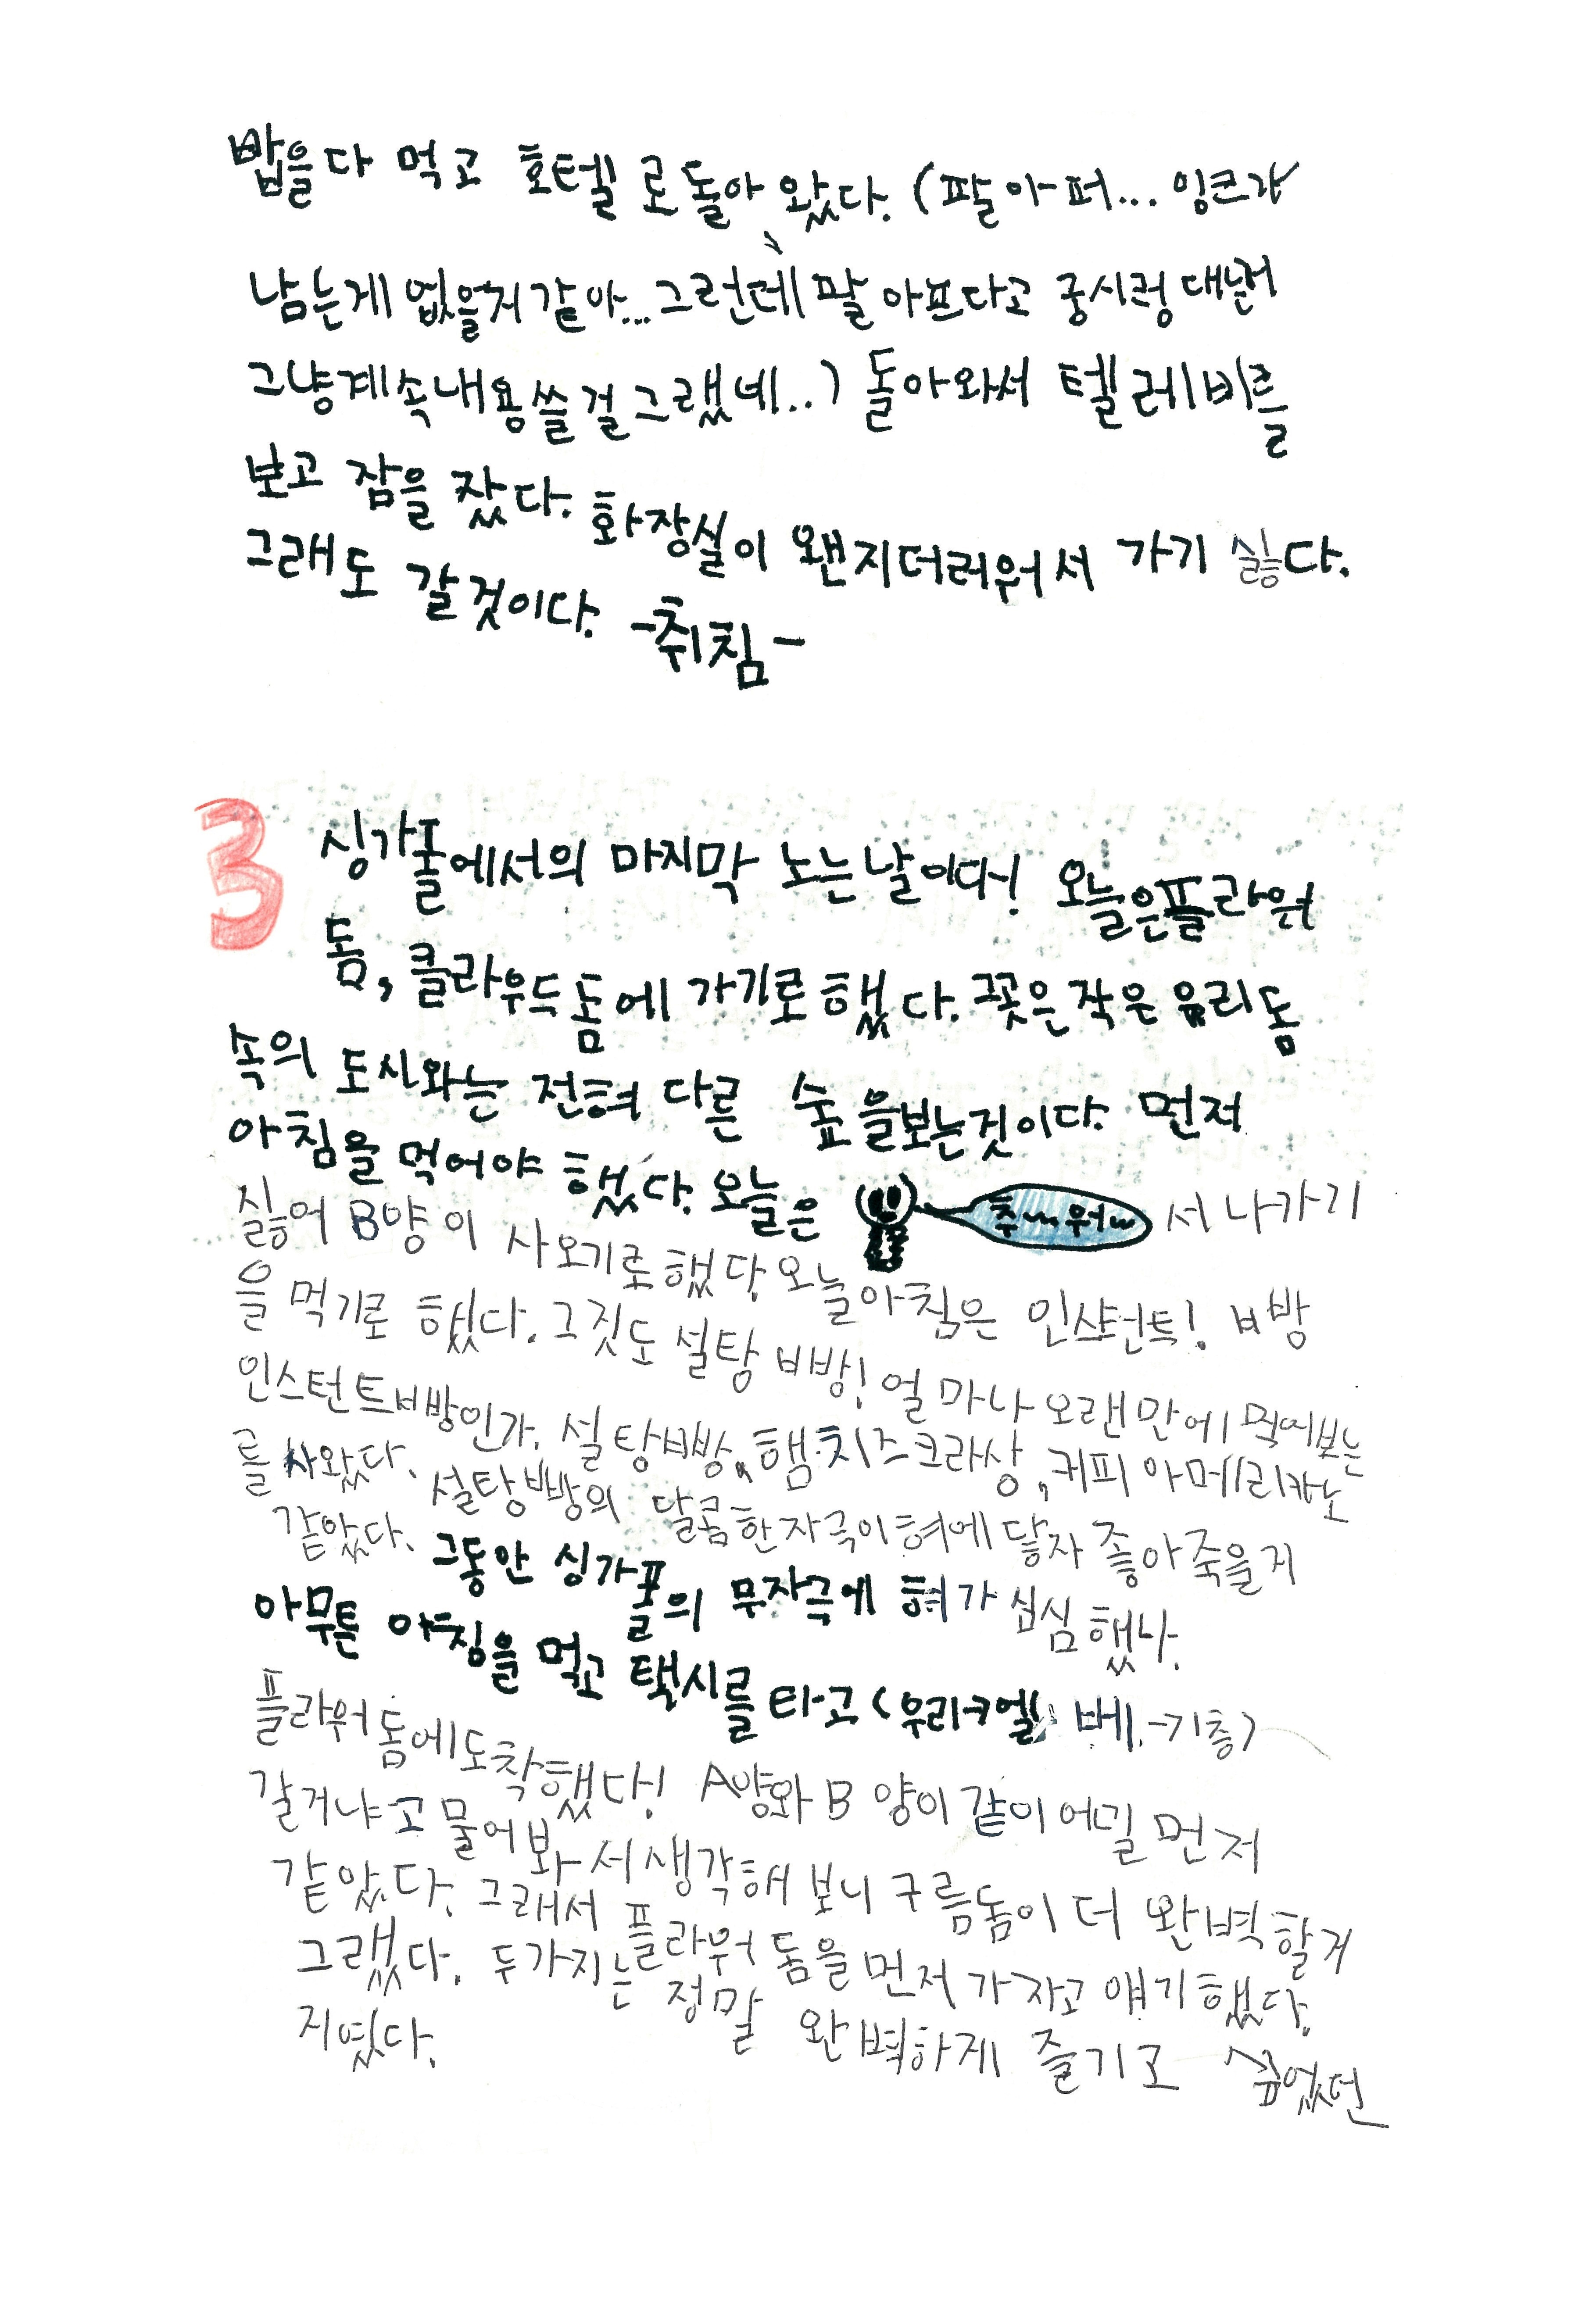 밥을다 먹고 호텔로돌아왔다. (팔아퍼... 잉크가
남는게 없을거같아... 그런데 팔 아프다고 궁시렁 대는거
그냥계속내용쓸걸그랬네..) 돌아와서 텔레비를
보고 잠을 잤다. 화장실이 왠지더러워서 가기 싫다.
그래도 갈것이다. -취침-
3
싱가폴에서의 마지막 노는날이다! 오늘은플라워
돔, 클라우드돔에 가기로 했다. 꽃은작은 유리돔
속의 도시와는 전혀 다른 숲을보는것이다. 먼저
아침을 먹어야 했다. 오늘은 추~워~ 서 나가기
싫어 B양이 사오기로했다. 오늘아침은 인스턴트! 빠방
을 먹기로 했다. 그것도 설탕빠방! 얼마나 오랜만에 먹어보는
인스턴트빠방인가. 설탕빠방, 햄치즈크라상, 커피 아메리카노
를 사왔다. 설탕빠방의 달콤한자극이혀에 닿자 좋아죽을거
같았다. 그동안 싱가폴의 무자극에 혀가 심심했나.
아무튼 아침을 먹고 택시를 타고 (우리ㅋ엘 베.-기층)
플라워돔에도착했다! A양와 B 양이 같이 어딜 먼저
갈거냐고 물어봐서생각해 보니 구름돔이 더 완벽할거
같았다. 그래서 플라워 돔을먼저가자고 얘기했다.
그랬다. 두가지는 정말 완벽하게 즐기고 싶었던
지였다.